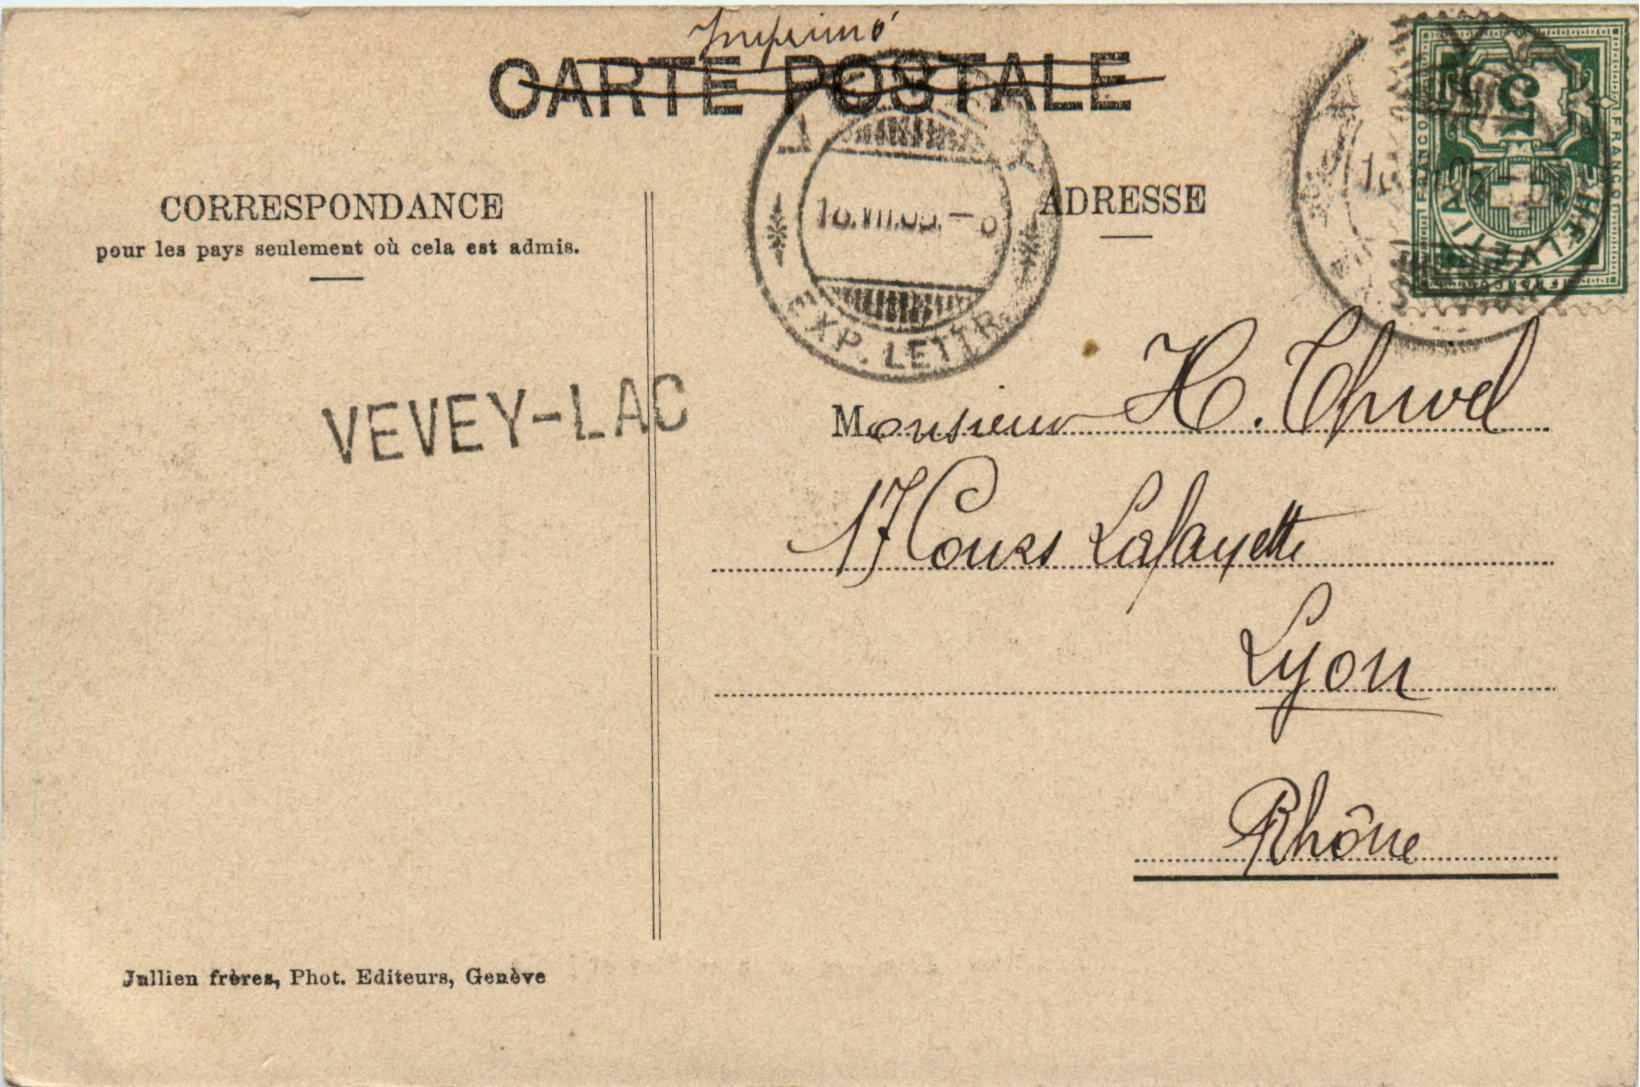 Imprimé
CARTE POSTALE
CORRESPONDANCE
pour les pays seulement où cela est admis.
ADRESSE
EXP. LETTR.
FRANCO
FRANCO
FRANCO
HELVETIA
5
VEVEY-LAC
Monsieur H.
17 Cours Lafayette
Lyon
Rhône
Jullien frères, Phot. Editeurs, Genève